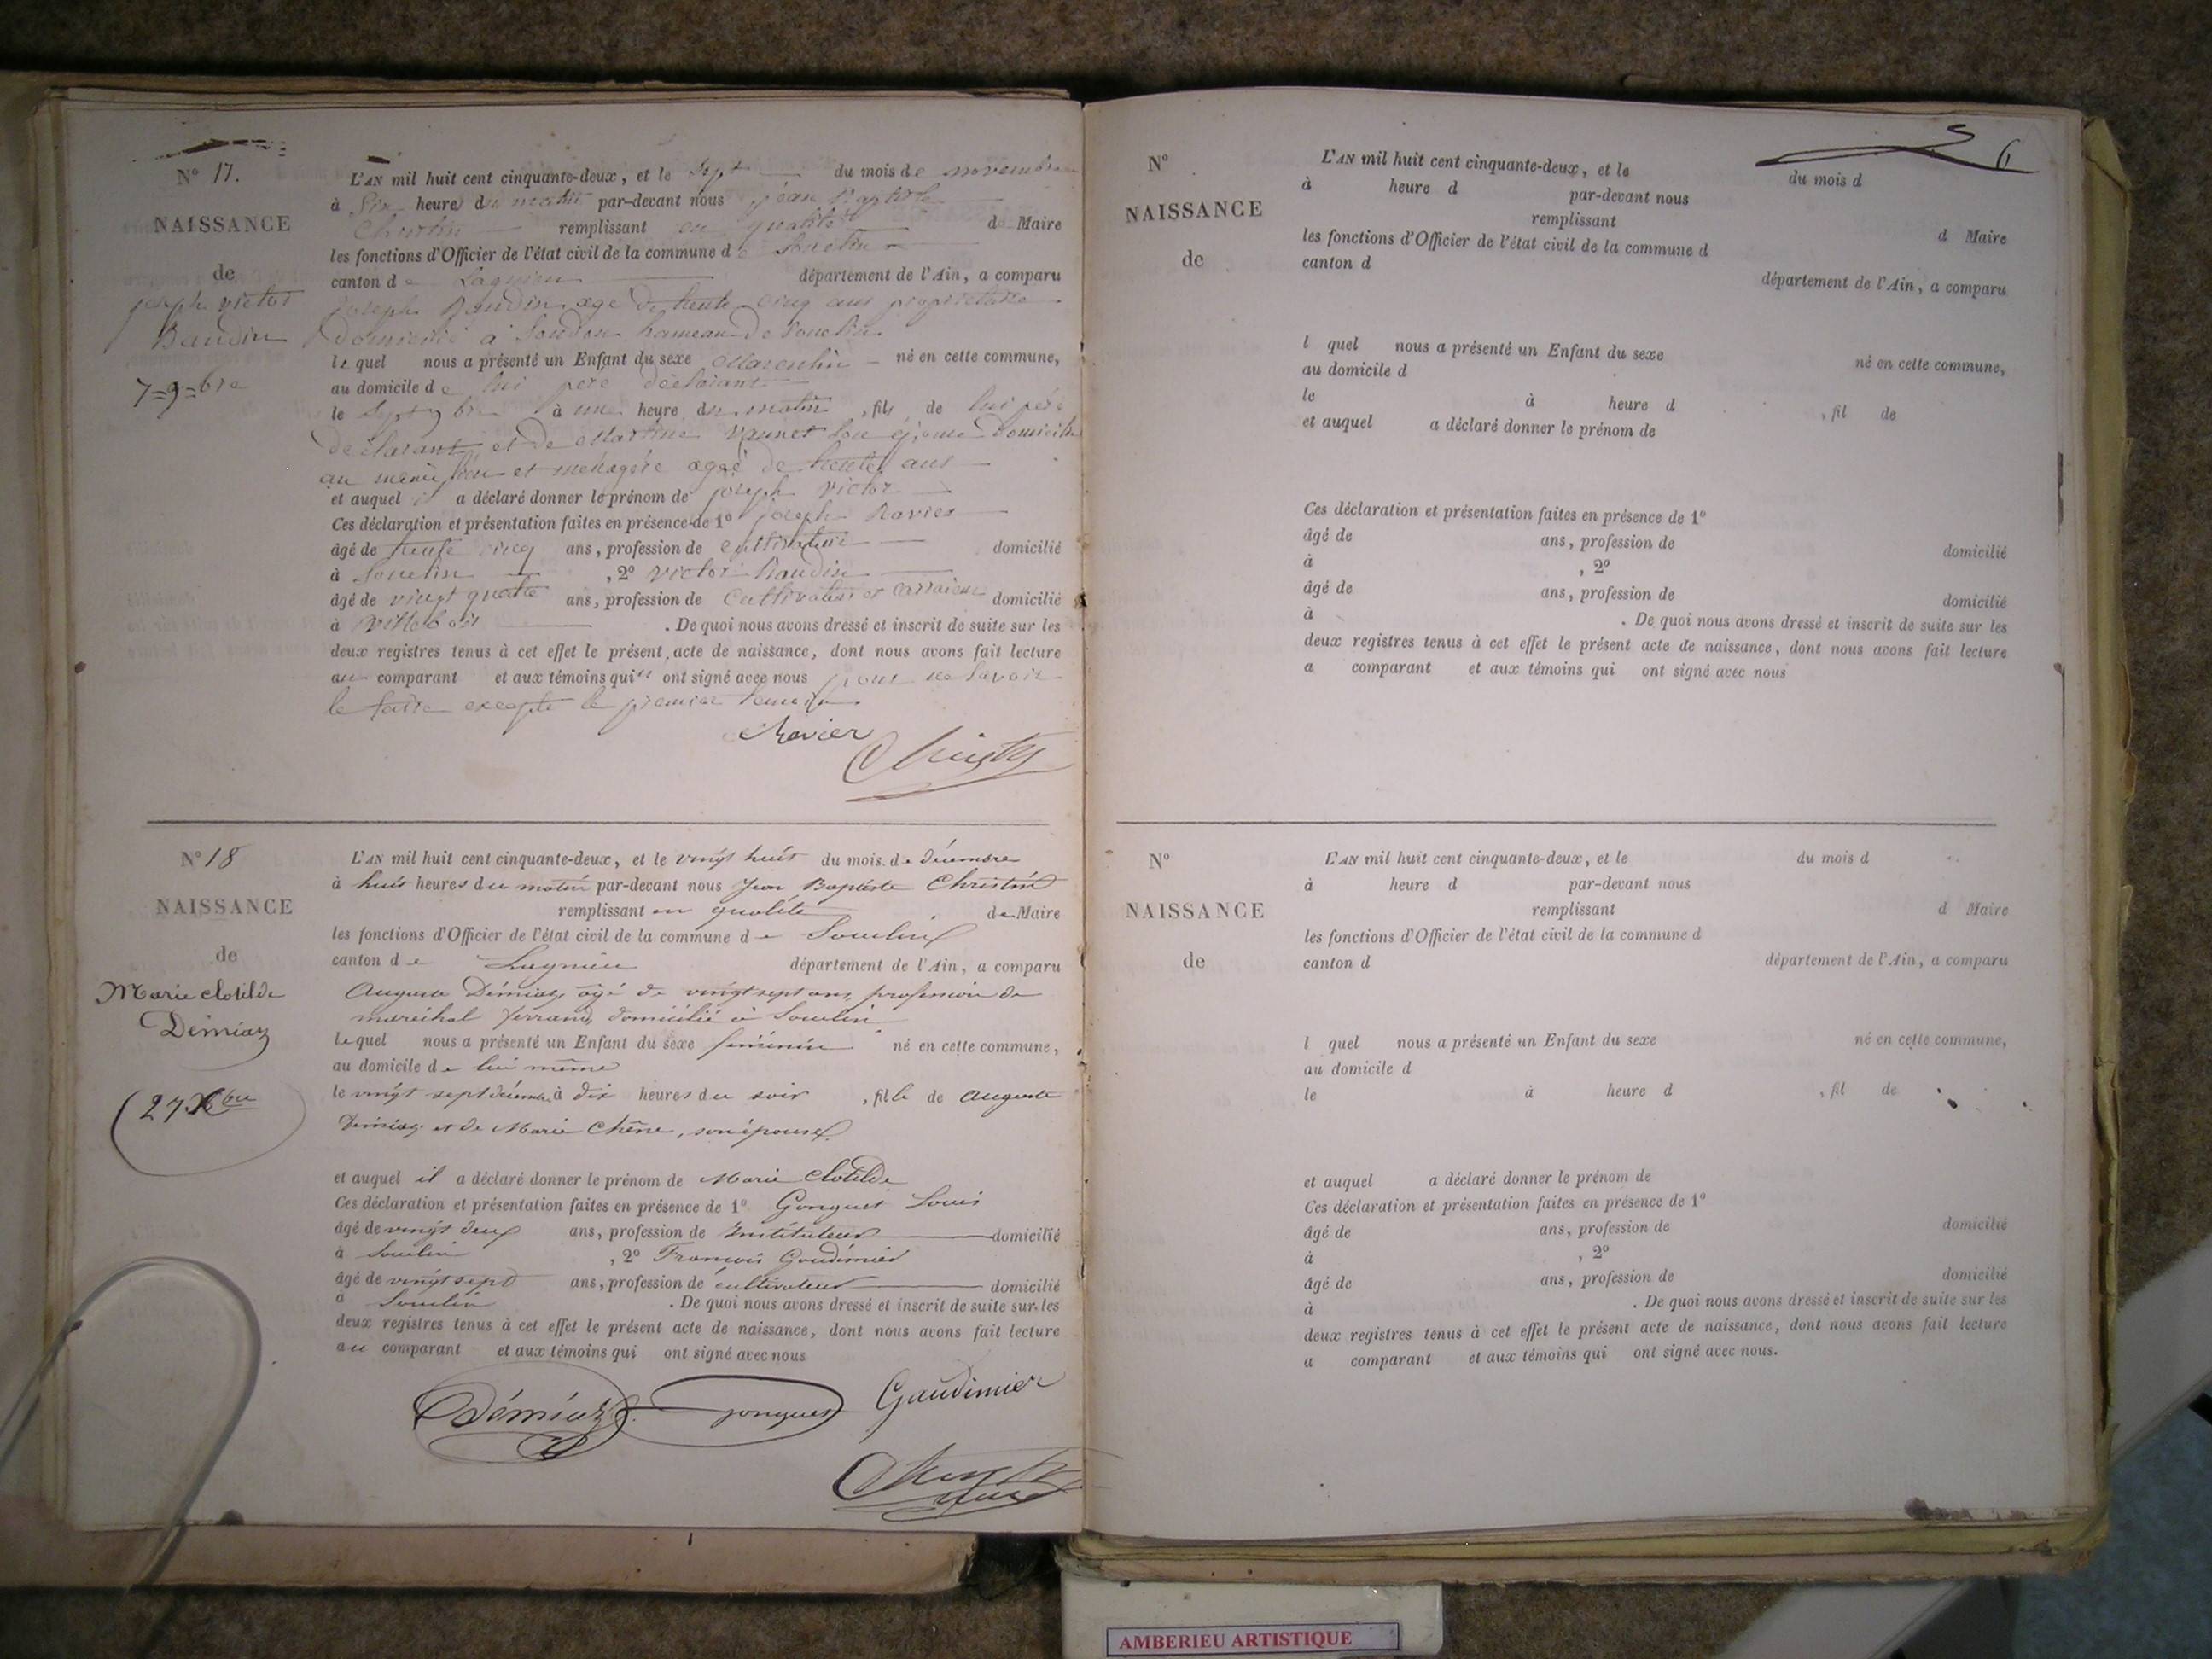 N° 17.
NAISSANCE
de
joseph victor
Baudin
7=9=bre
L'AN mil huit cent cinquante-deux, et le Sept du mois de novembre
à Six heures du matin par-devant nous jean Baptiste
Christin remplissant en qualité de Maire
les fonctions d'Officier de l'état civil de la commune de Souclin
canton de Lagnieu département de l'Ain, a comparu
joseph Baudin agé de trente cinq ans propriétaire
domicilié à Soudon hameau de Souclin
lequel nous a présenté un Enfant du sexe Masculin né en cette commune,
au domicile de lui père déclarant
le Sept 9bre à une heure du matin, fils de lui père
déclarant et de Martine son épouse domicilié
au même lieu et menagère agée de trente ans
et auquel il a déclaré donner le prénom de joseph victor
Ces déclaration et présentation faites en présence de 1° joseph Ravier
âgé de trente cinq ans, profession de cultivateur domicilié
à Souclin, 2° victor Baudin
âgé de vingt quatre ans, profession de Cultivateur et carrieur domicilié
à Villebois. De quoi nous avons dressé et inscrit de suite sur les
deux registres tenus à cet effet le présent acte de naissance, dont nous avons fait lecture
au comparant et aux témoins qui ont signé avec nous pour ne savoir
le faire excepté le premier temoin
Ravier
Christin
N° 18
NAISSANCE
de
Marie clotilde
Démiaz
(27 Xbre
L'AN mil huit cent cinquante-deux, et le vingt huit du mois de décembre
à huit heures du matin par-devant nous Jean Baptiste Christin
remplissant en qualité de Maire
les fonctions d'Officier de l'état civil de la commune de Souclin
canton de Lagnieu département de l'Ain, a comparu
Auguste Démiaz, âgé de vingt sept ans, profession de
maréchal ferrand, domicilié à Souclin
Lequel nous a présenté un Enfant du sexe féminin né en cette commune,
au domicile de lui même
le vingt sept décembre à dix heures du soir, fille de Auguste
Démiaz et de Marie Chêne, son épouse
et auquel il a déclaré donner le prénom de Marie Clotilde
Ces déclaration et présentation faites en présence de 1° Gonguet Louis
âgé de vingt deux ans, profession de Instituteur domicilié
à Souclin, 2° François Gaudimier
âgé de vingt sept ans, profession de cultivateur domicilié
à Souclin. De quoi nous avons dressé et inscrit de suite sur les
deux registres tenus à cet effet le présent acte de naissance, dont nous avons fait lecture
au comparant et aux témoins qui ont signé avec nous
Démiaz gonguet Gaudimier
Christin
maire
6
N°
NAISSANCE
de
L'AN mil huit cent cinquante-deux, et le du mois d
à heure d par-devant nous
remplissant d Maire
les fonctions d'Officier de l'état civil de la commune d
canton d département de l'Ain, a comparu
l quel nous a présenté un Enfant du sexe né en cette commune,
au domicile d
le à heure d , fil de
et auquel a déclaré donner le prénom de
Ces déclaration et présentation faites en présence de 1°
âgé de ans, profession de domicilié
à , 2°
âgé de ans, profession de domicilié
à . De quoi nous avons dressé et inscrit de suite sur les
deux registres tenus à cet effet le présent acte de naissance, dont nous avons fait lecture
a comparant et aux témoins qui ont signé avec nous
N°
NAISSANCE
de
L'AN mil huit cent cinquante-deux, et le du mois d
à heure d par-devant nous
remplissant d Maire
les fonctions d'Officier de l'état civil de la commune d
canton d département de l'Ain, a comparu
l quel nous a présenté un Enfant du sexe né en cette commune,
au domicile d
le à heure d , fil de
et auquel a déclaré donner le prénom de
Ces déclaration et présentation faites en présence de 1°
âgé de ans, profession de domicilié
à , 2°
âgé de ans, profession de domicilié
à . De quoi nous avons dressé et inscrit de suite sur les
deux registres tenus à cet effet le présent acte de naissance, dont nous avons fait lecture
a comparant et aux témoins qui ont signé avec nous.
AMBERIEU ARTISTIQUE